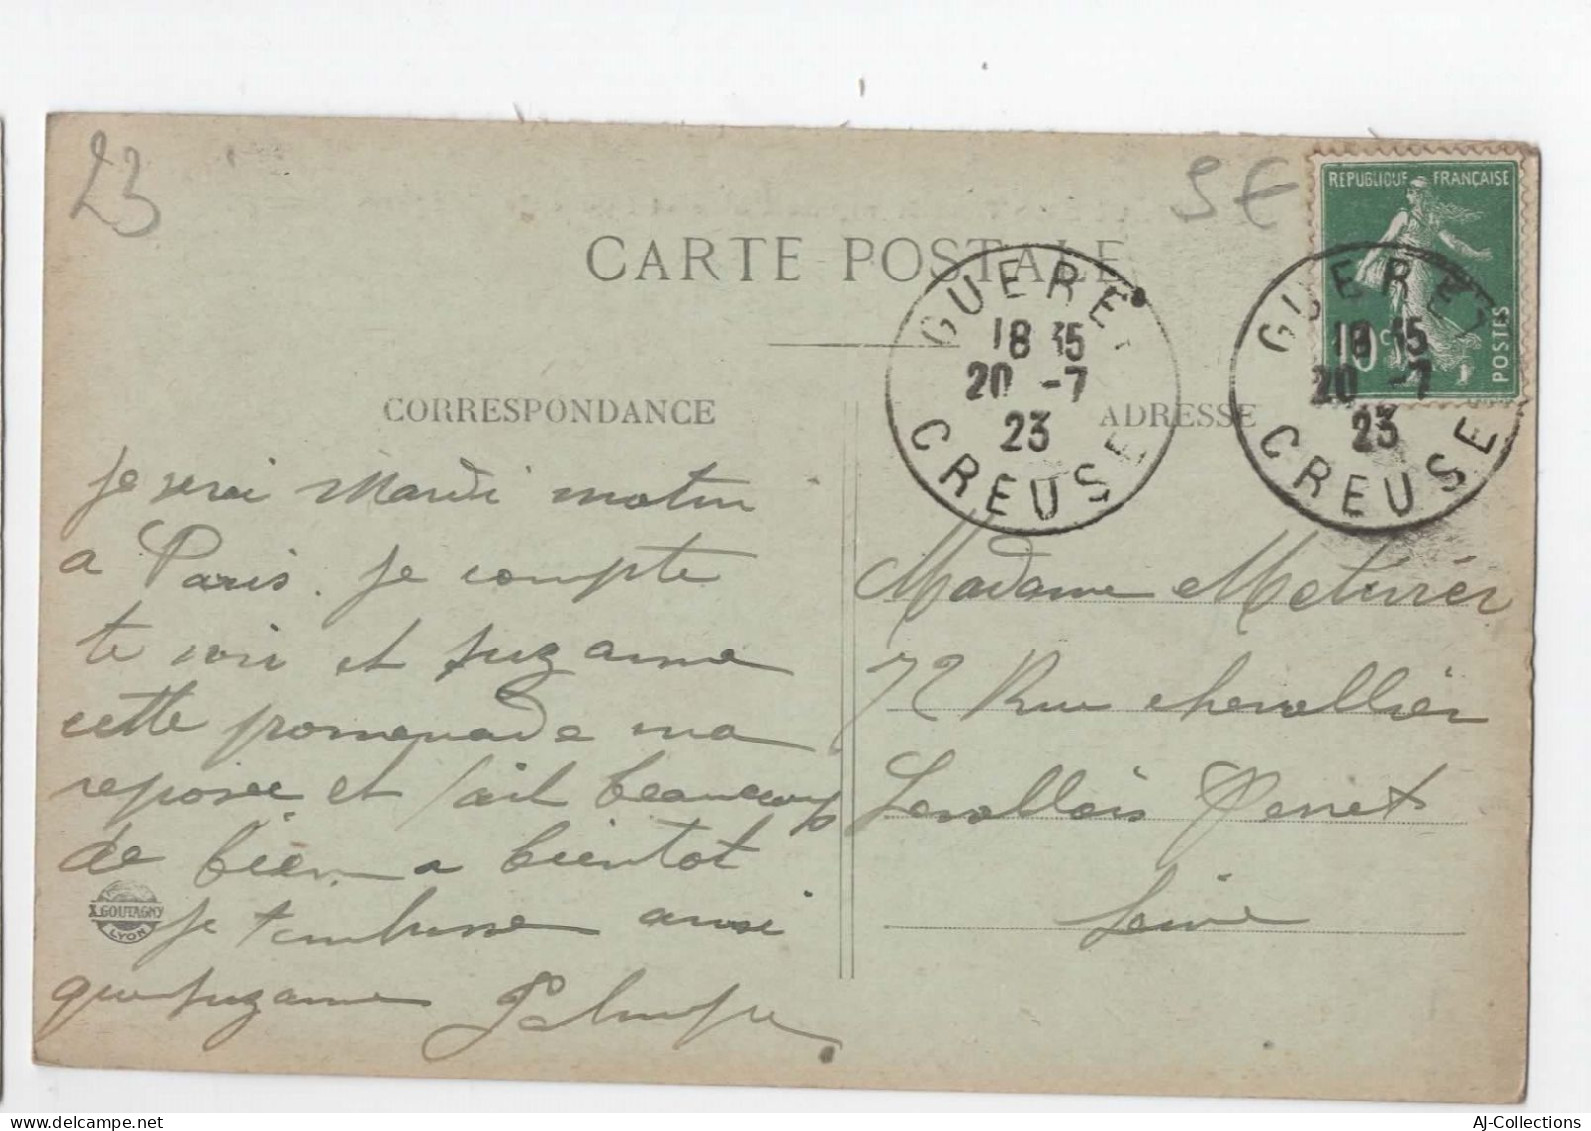 23
5 €
REPUBLIQUE FRANÇAISE
10 c
POSTES
CARTE POSTALE
GUERET
18 35
20 -7
23
CREUSE
GUERET
18 35
20 -7
23
CREUSE
CORRESPONDANCE
ADRESSE
je serai Mardi matin
a Paris. je compte
te voir et suzanne
cette promenade ma
reposée et fait beaucoup
de bien a bientot
je t'embrasse ainsi
que suzanne
X. GOUTAGNY
LYON
Madame Metivier
72 Rue chevallier
Levallois Perret
Seine
AJ-Collections